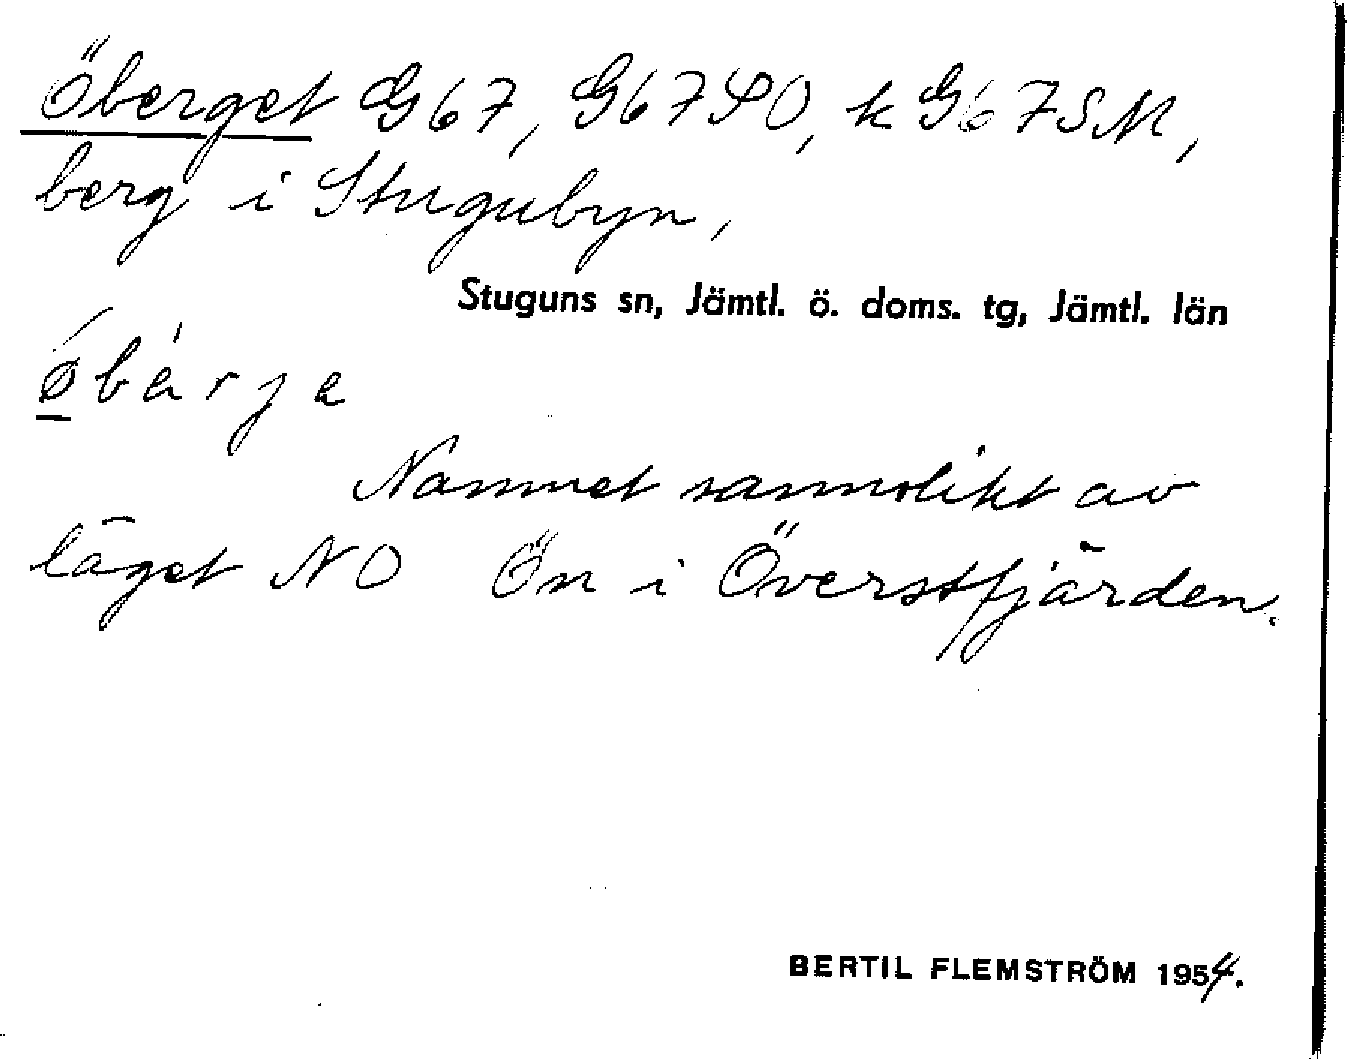 Öberget G67, G67SO, k G67SM,
berg i Stugubyn,
Stuguns sn, Jämtl. ö. doms. tg, Jämtl. län
ǿ̱bàrje
Namnet sannolikt av
läget NO Ön i Överstfjärden.
BERTIL FLEMSTRÖM 1954.